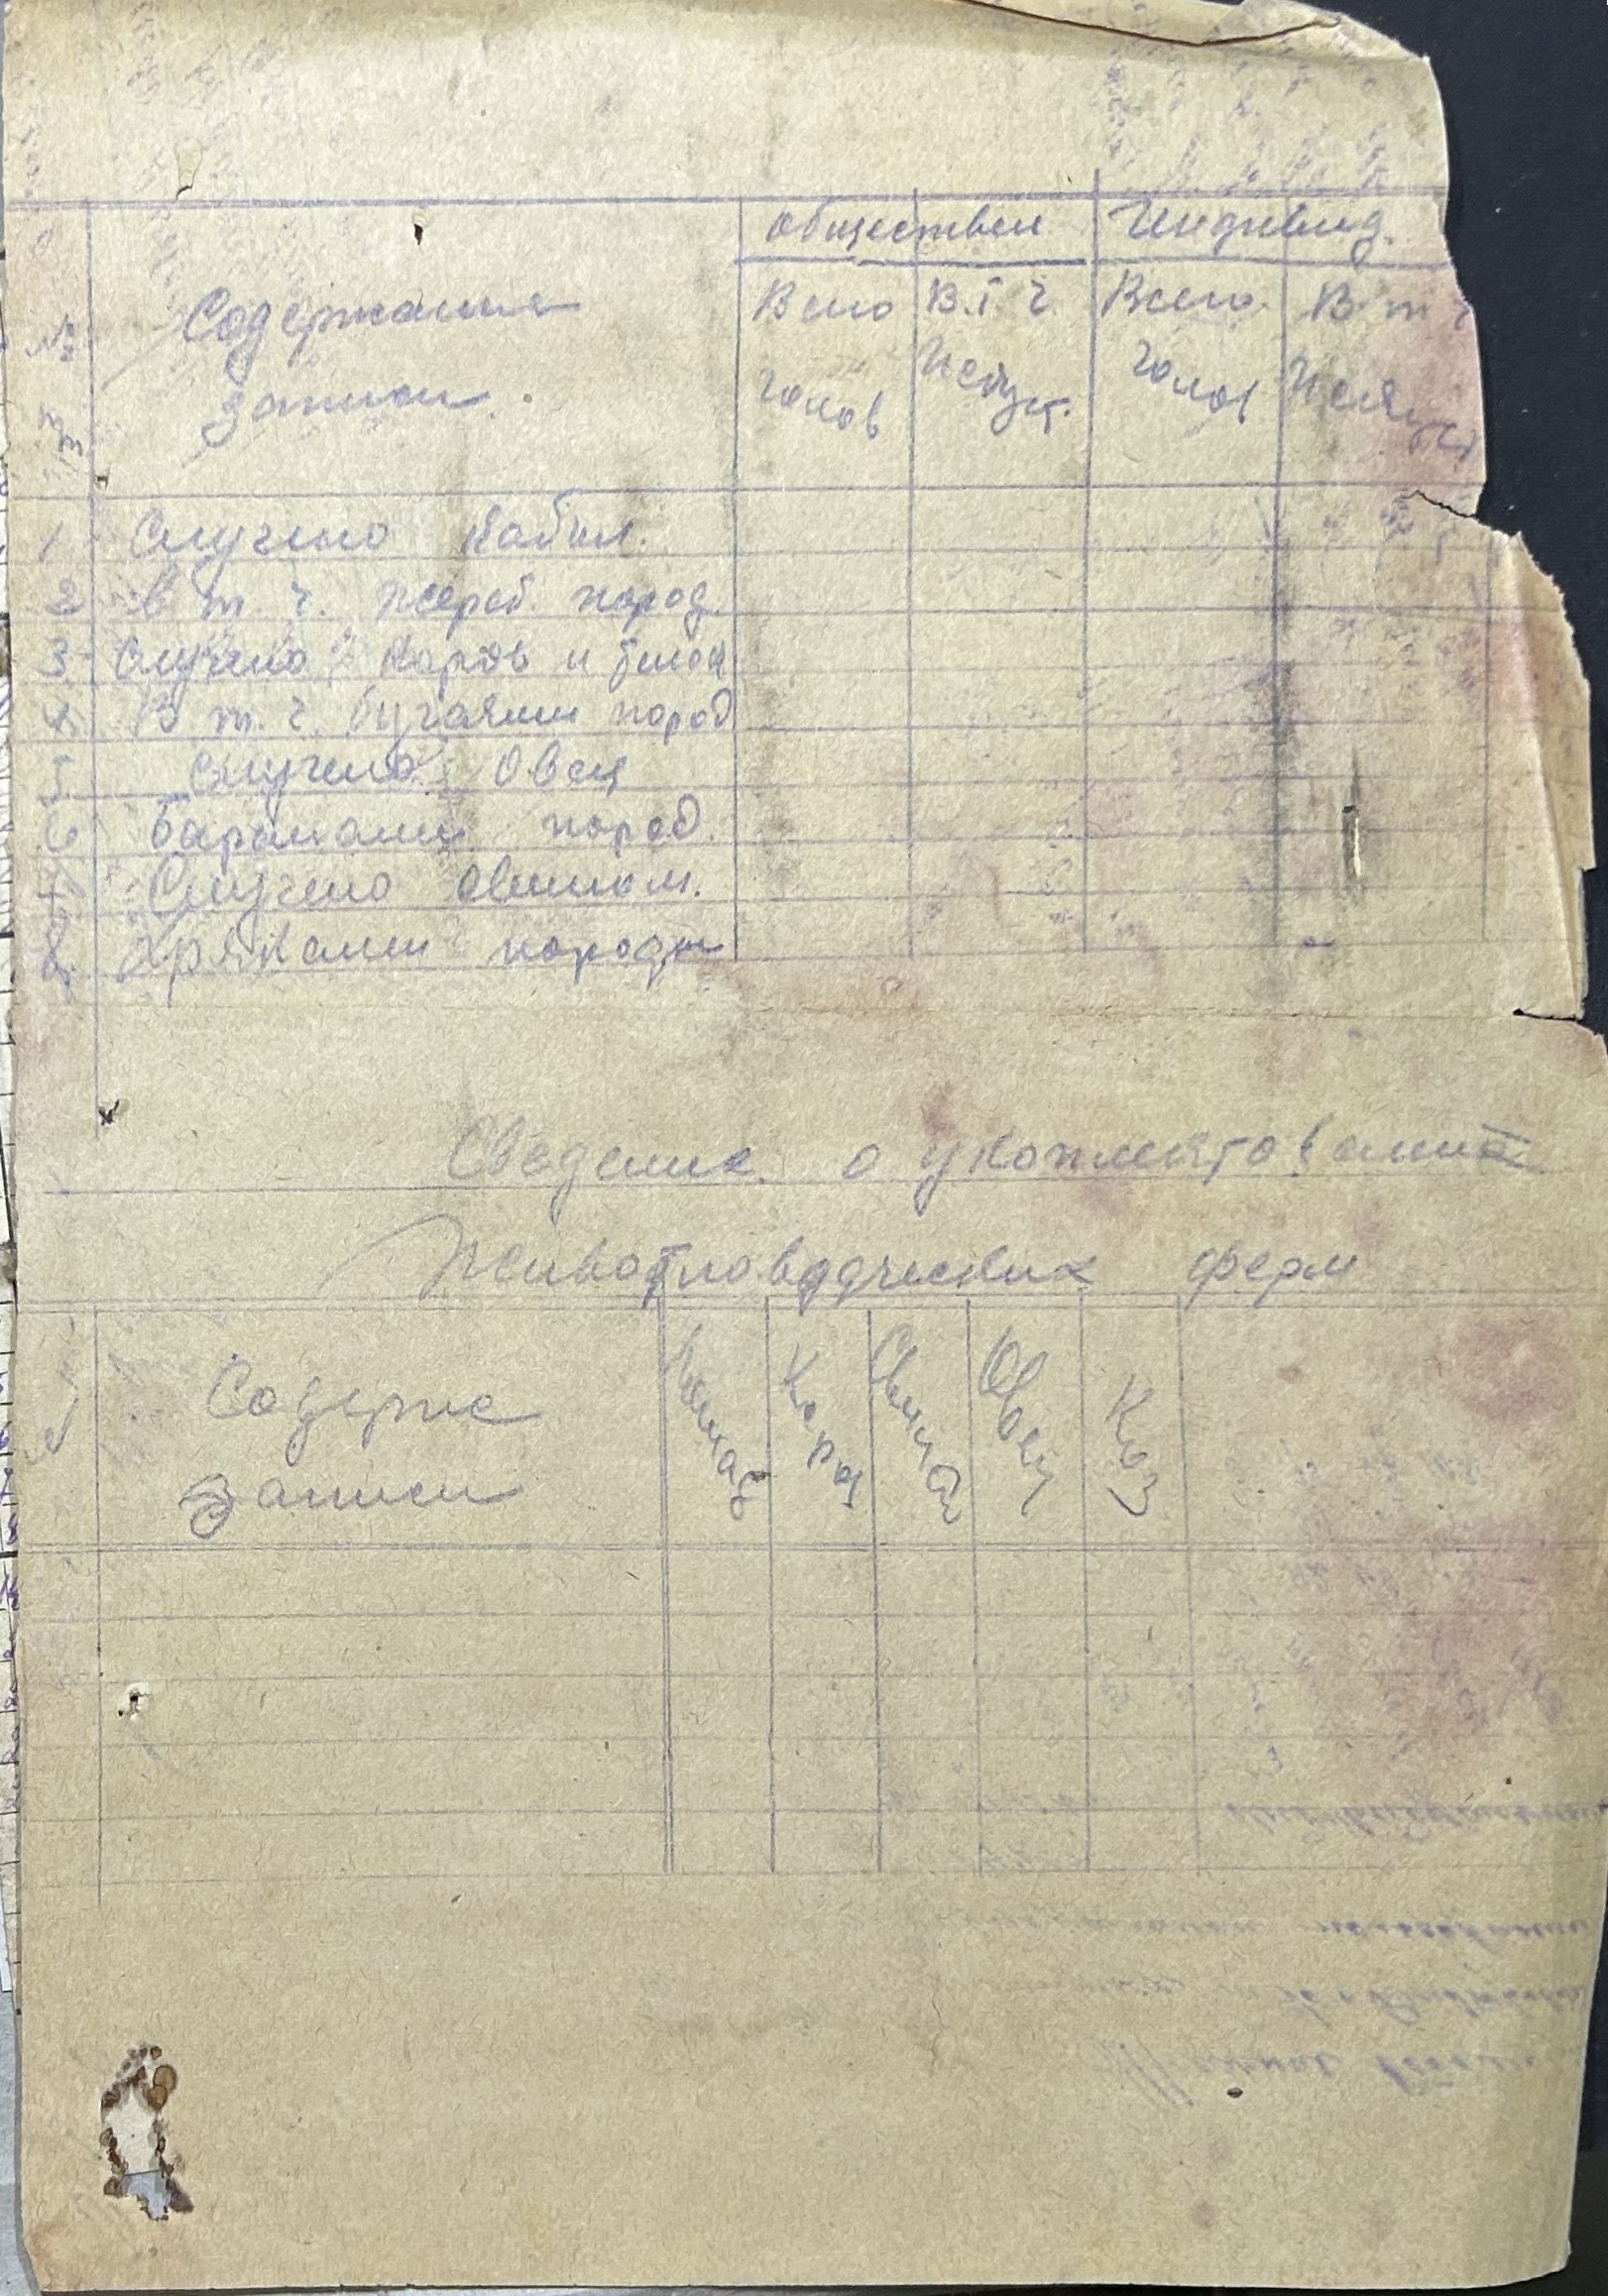 обществен Индивид.
№ п/п Содержание записи. Всего голов В.т.ч. Всего голов В т ч
1 Случено кобыл.
2 в т. ч. жереб. пород.
3 Случено коров и телок
4. В т. ч. бугаями пород
5 Случено Овец
6 Баранами пород.
7 Случено свином.
8. Хряками породы
Сведение о укомплектовании
Животноводческих ферм
Содержа записи Лошад Коров Свиней Овец Коз